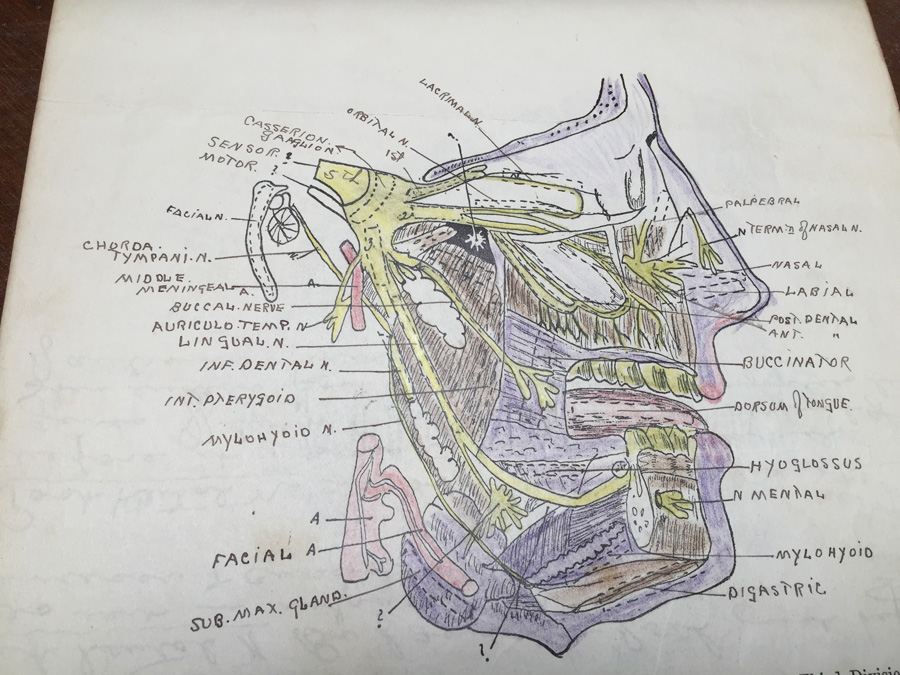 LACRIMAL N.
ORBITAL N.
?
1ST
CASSERION.
GANGLION
SENSOR. ?
MOTOR. ?
5TH
2
3
FACIAL N.
CHORDA.
TYMPANI. N.
MIDDLE.
MENINGEAL A.
A.
BUCCAL. NERVE
AURICULO. TEMP. N
LINGUAL. N.
INF. DENTAL N.
INT. PTERYGOID
MYLOHYOID N.
A
FACIAL A
SUB. MAX. GLAND.
?
?
PALPEBRAL
N TERM-N of NASAL N.
NASAL
LABIAL
POST. DENTAL
ANT. "
BUCCINATOR
DORSUM of TONGUE.
HYOGLOSSUS
N MENTAL
MYLOHYOID
DIGASTRIC
Third Divisio